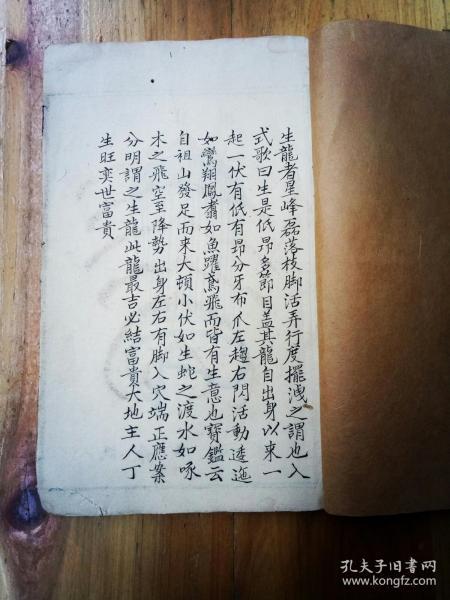 生龍者星峰磊落枝脚活弄行度擺洩之謂也入
式歌曰生是低昂多節目盖其龍自出身以來一
起一伏有低有昂分牙布爪左趨右閃活動逶迤
如鸞翔鳳翥如魚躍鳶飛而皆有生意也寶鑑云
自祖山發足而來大頓小伏如生蛇之渡水如啄
木之飛空至降勢出身左右有脚入穴端正應案
分明謂之生龍此龍最吉必結富貴大地主人丁
生旺奕世富貴
孔夫子旧书网
www.kongfz.com